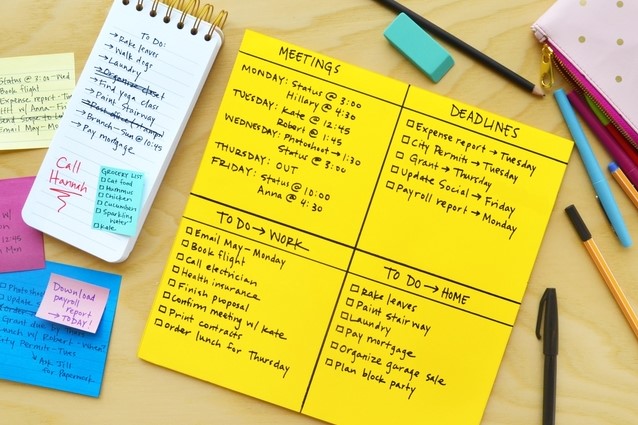 Status @ 3:00-Wed
Book flight
Expense report-
w/ Anna-Fri
Email May-Mon
TO DO:
→Rake leaves
→Walk dogs
→Laundry
→Organize closet
→Find yoga class
→Paint Stairway
→Branch-Sun @ 10:45
→Pay mortgage
Call
Hannah
GROCERY LIST
☐ Cat food
☐ Hummus
☐ Chicken
☐ Cucumber
☐ Sparkling
water
☐ Kale
w/
12:45
Mon
Download
payroll
report
→TODAY!
☐ Update
Grant due by
Lunch w/ Robert-When?
City Permit-Tues
↳ Ask Jill
for Paperwork
MEETINGS
MONDAY: Status @ 3:00
Hillary @ 4:30
TUESDAY: Kate @ 12:45
Robert @ 1:45
WEDNESDAY: Photoshoot→1:30
Status @ 3:00
THURSDAY: OUT
FRIDAY: Status @ 10:00
Anna @ 4:30
DEADLINES
☐ Expense report→Tuesday
☐ City Permit→Tuesday
☐ Grant→Thursday
☐ Update Social→Friday
☐ Payroll report→Monday
TO DO→WORK
☐ Email May-Monday
☐ Book flight
☐ Call electrician
☐ Health insurance
☐ Finish proposal
☐ Confirm meeting w/ Kate
☐ Print contracts
☐ Order lunch for Thursday
TO DO→HOME
☐ Rake leaves
☐ Paint stairway
☐ Laundry
☐ Pay mortgage
☐ Organize garage sale
☐ Plan block party